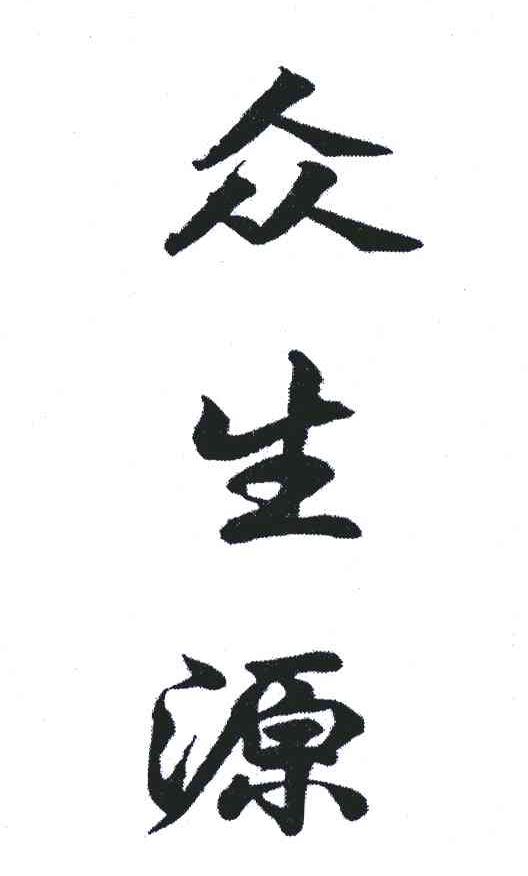 众生源